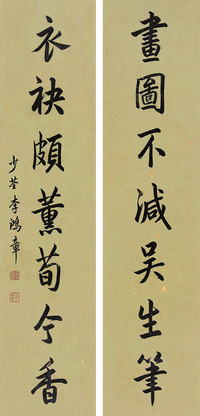 畫圖不減吳生筆
衣袂頗薰荀令香
少荃李鴻章